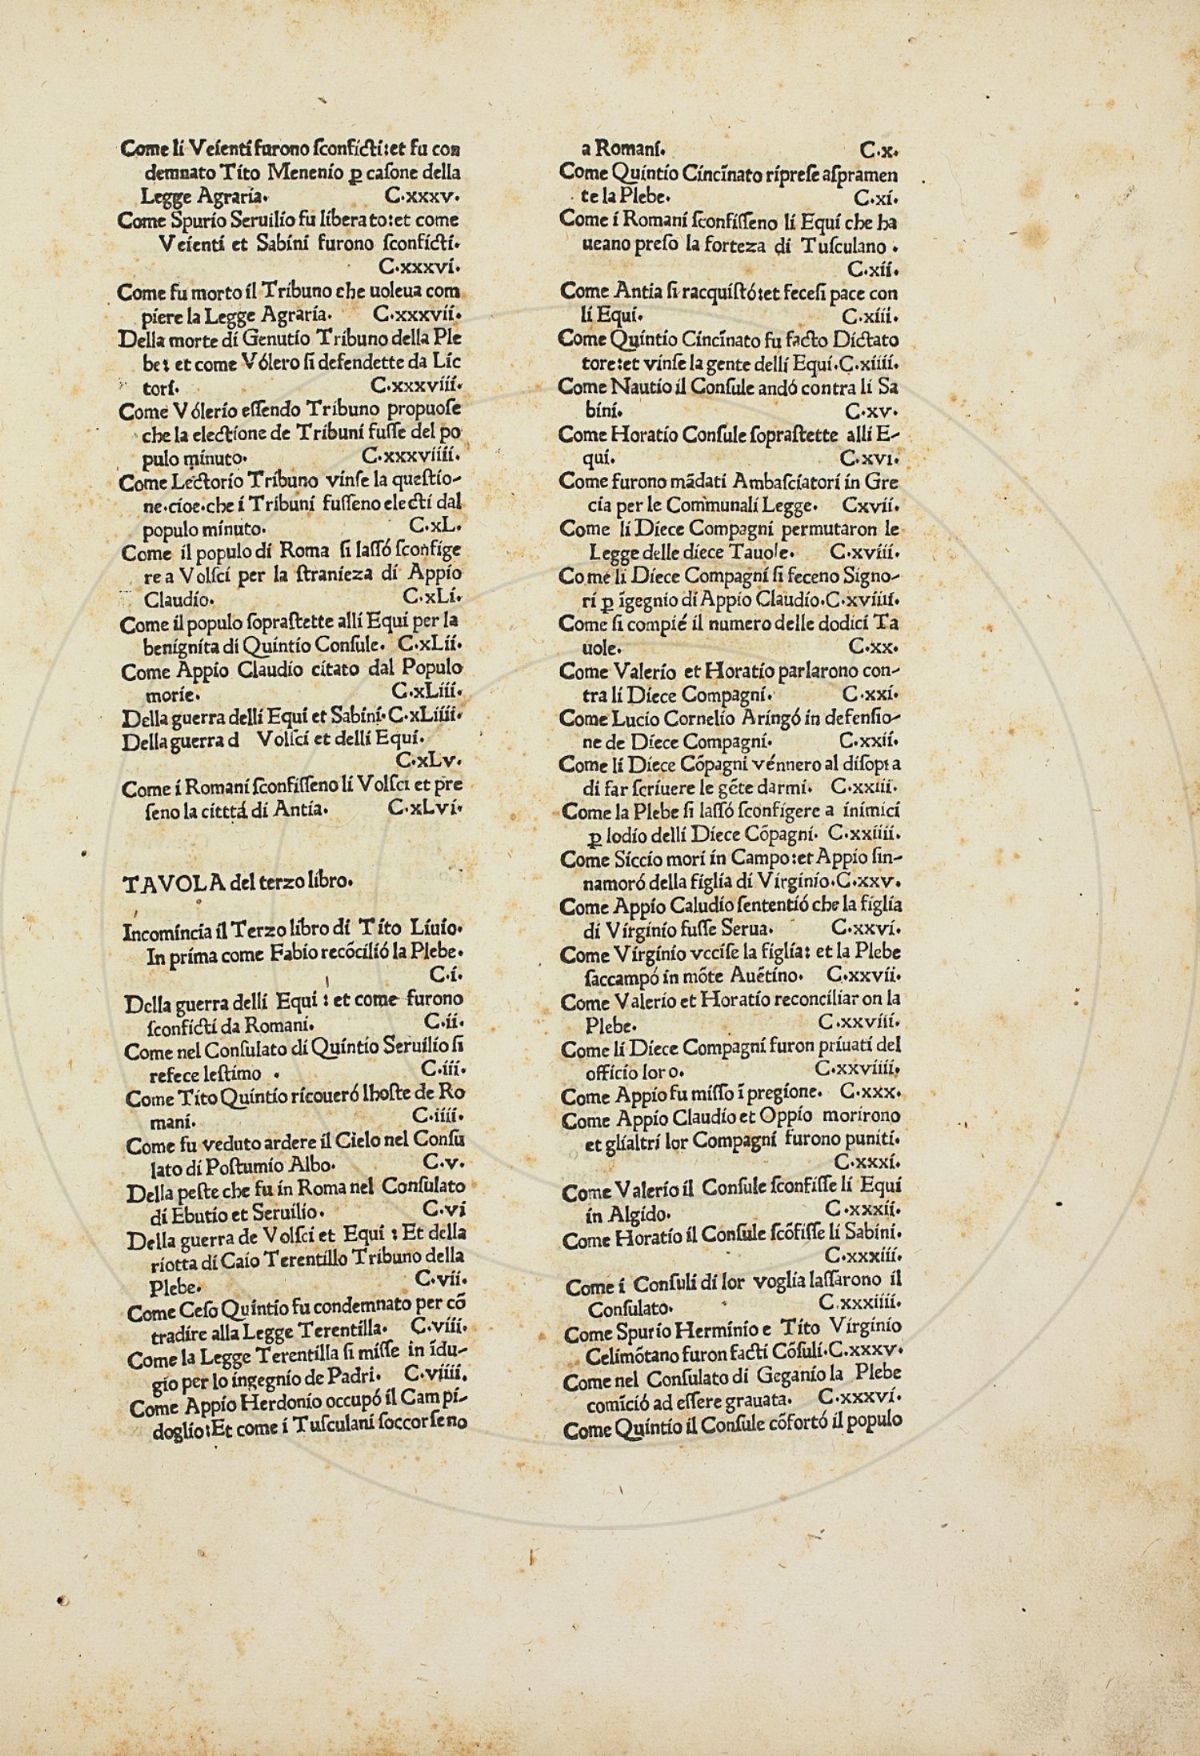 Come li Veienti furono ſconficti:et fu con
demnato Tito Menenio ꝑ caſone della
Legge Agraria. C.xxxv.
Come Spurio Seruilio fu libera to:et come
Veienti et Sabini furono ſconficti.
C.xxxvi.
Come fu morto il Tribuno che uoleua com
piere la Legge Agraria. C.xxxvii.
Della morte di Genutio Tribuno della Ple
be: et come Vólero ſi defendette da Lic
tori. C.xxxviii.
Come Vólerio eſſendo Tribuno propuoſe
che la electione de Tribuni fuſſe del po
pulo minuto. C.xxxviiii.
Come Lectorio Tribuno vinſe la queſtio-
ne.cioe.che i Tribuni fuſſeno electi dal
populo minuto. C.xL.
Come il populo di Roma ſi laſſó ſconfige
re a Volſci per la ſtranieza di Appio
Claudio. C.xLi.
Come il populo ſopraſtette alli Equi per la
benignita di Quintio Conſule. C.xLii.
Come Appio Claudio citato dal Populo
morie. C.xLiii.
Della guerra delli Equi et Sabini.C.xLiiii.
Della guerra d Volſci et delli Equi.
C.xLv.
Come i Romani ſconfiſſeno li Volſci et pre
ſeno la cittá di Antia. C.xLvi.
TAVOLA del terzo libro.
Incomincia il Terzo libro di Tito Liuio.
In prima come Fabio recõciliò la Plebe.
C.i.
Della guerra delli Equi : et come furono
ſconficti da Romani. C.ii.
Come nel Conſulato di Quintio Seruilio ſi
refece leſtimo . C.iii.
Come Tito Quintio ricoueró lhoſte de Ro
mani. C.iiii.
Come fu veduto ardere il Cielo nel Conſu
lato di Poſtumio Albo. C.v.
Della peſte che fu in Roma nel Conſulato
di Ebutio et Seruilio. C.vi
Della guerra de Volſci et Equi : Et della
riotta di Caio Terentillo Tribuno della
Plebe. C.vii.
Come Ceſo Quintio fu condemnato per cõ
tradire alla Legge Terentilla. C.viii.
Come la Legge Terentilla ſi miſſe in ĩdu-
gio per lo ingegnio de Padri. C.viiii.
Come Appio Herdonio occupó il Campi-
doglio:Et come i Tuſculani ſoccorſeno
a Romani. C.x.
Come Quintio Cincĩnato ripreſe aſpramen
te la Plebe. C.xi.
Come i Romani ſconfiſſeno li Equi che ha
ueano preſo la forteza di Tuſculano .
C.xii.
Come Antia ſi racquiſtó:et feceſi pace con
li Equi. C.xiii.
Come Quintio Cincĩnato fu facto Dictato
tore:et vinſe la gente delli Equi.C.xiiii.
Come Nautio il Conſule andó contra li Sa
bini. C.xv.
Come Horatio Conſule ſopraſtette alli E-
qui. C.xvi.
Come furono mãdati Ambaſciatori in Gre
cia per le Communali Legge. Cxvii.
Come li Diece Compagni permutaron le
Legge delle diece Tauole. C.xviii.
Come li Diece Compagni ſi feceno Signo-
ri ꝑ ĩgegnio di Appio Claudio.C.xviiii.
Come ſi compié il numero delle dodici Ta
uole. C.xx.
Come Valerio et Horatio parlarono con-
tra li Diece Compagni. C.xxi.
Come Lucio Cornelio Aringó in defenſio-
ne de Diece Compagni. C.xxii.
Come li Diece Cõpagni vénnero al diſopra
di far ſcriuere le gẽte darmi. C.xxiii.
Come la Plebe ſi laſſó ſconfigere a inimici
ꝑ lodio delli Diece Cõpagni. C.xxiiii.
Come Siccio mori in Campo:et Appio ſin-
namoró della figlia di Virginio.C.xxv.
Come Appio Caludio ſententió che la figlia
di Virginio fuſſe Serua. C.xxvi.
Come Virginio vcciſe la figlia: et la Plebe
ſaccampó in mõte Auẽtino. C.xxvii.
Come Valerio et Horatio reconciliar on la
Plebe. C.xxviii.
Come li Diece Compagni furon priuati del
officio lor o. C.xxviiii.
Come Appio fu miſſo ĩ pregione. C.xxx.
Come Appio Claudio et Oppio morirono
et glialtri lor Compagni furono puniti.
C.xxxi.
Come Valerio il Conſule ſconfiſſe li Equi
in Algido. C.xxxii.
Come Horatio il Conſule ſcõfiſſe li Sabini.
C.xxxiii.
Come i Conſuli di lor voglia laſſarono il
Conſulato. C.xxxiiii.
Come Spurio Herminio e Tito Virginio
Celimõtano furon facti Cõſuli.C.xxxv.
Come nel Conſulato di Geganio la Plebe
comĩció ad eſſere grauata. C.xxxvi.
Come Quintio il Conſule cõfortó il populo